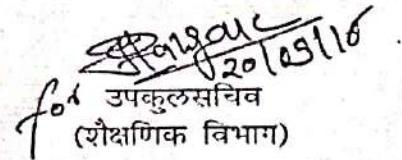 20/05/16
for उपकुलसचिव
(शैक्षणिक विभाग)